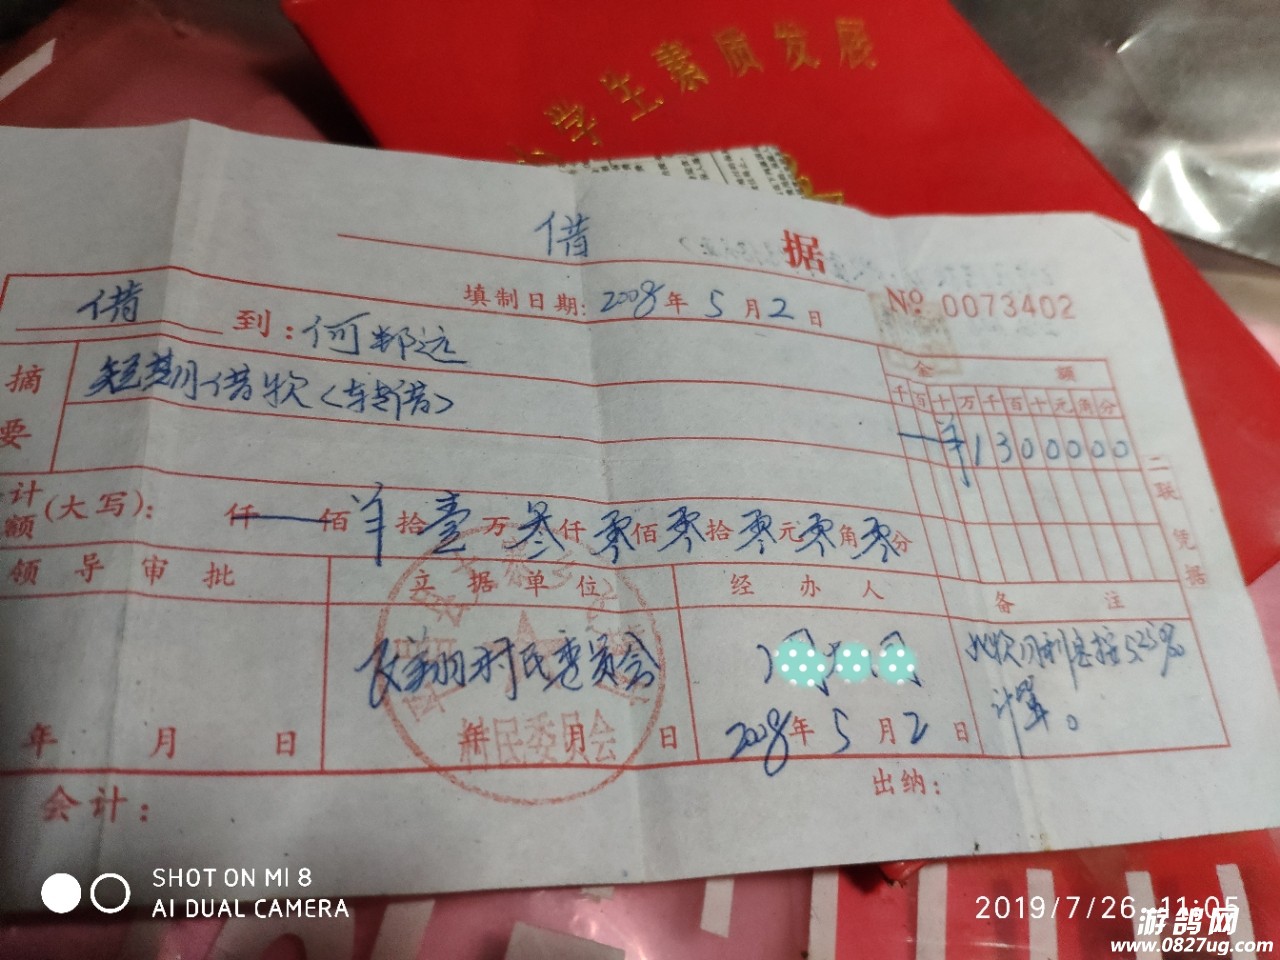 学生素质发展
借 据
填制日期: 2008年 5月 2日
№ 0073402
借 到: 何邦远
摘要
短期借款(转借)
金额
千百十万千百十元角分
¥1300000
计额(大写): 仟 佰 羊 拾 壹 万 叁 仟 零 佰 零 拾 零 元 零 角 零 分
二联 凭据
领导审批
立据单位
经办人
备注
村民委员会
此款月利息按5.25‰
计算。
年 月 日
村民委员会
日
2008年 5月 2日
会计:
出纳:
SHOT ON MI 8
AI DUAL CAMERA
2019/7/26 11:05
游鸽网
www.0827ug.com